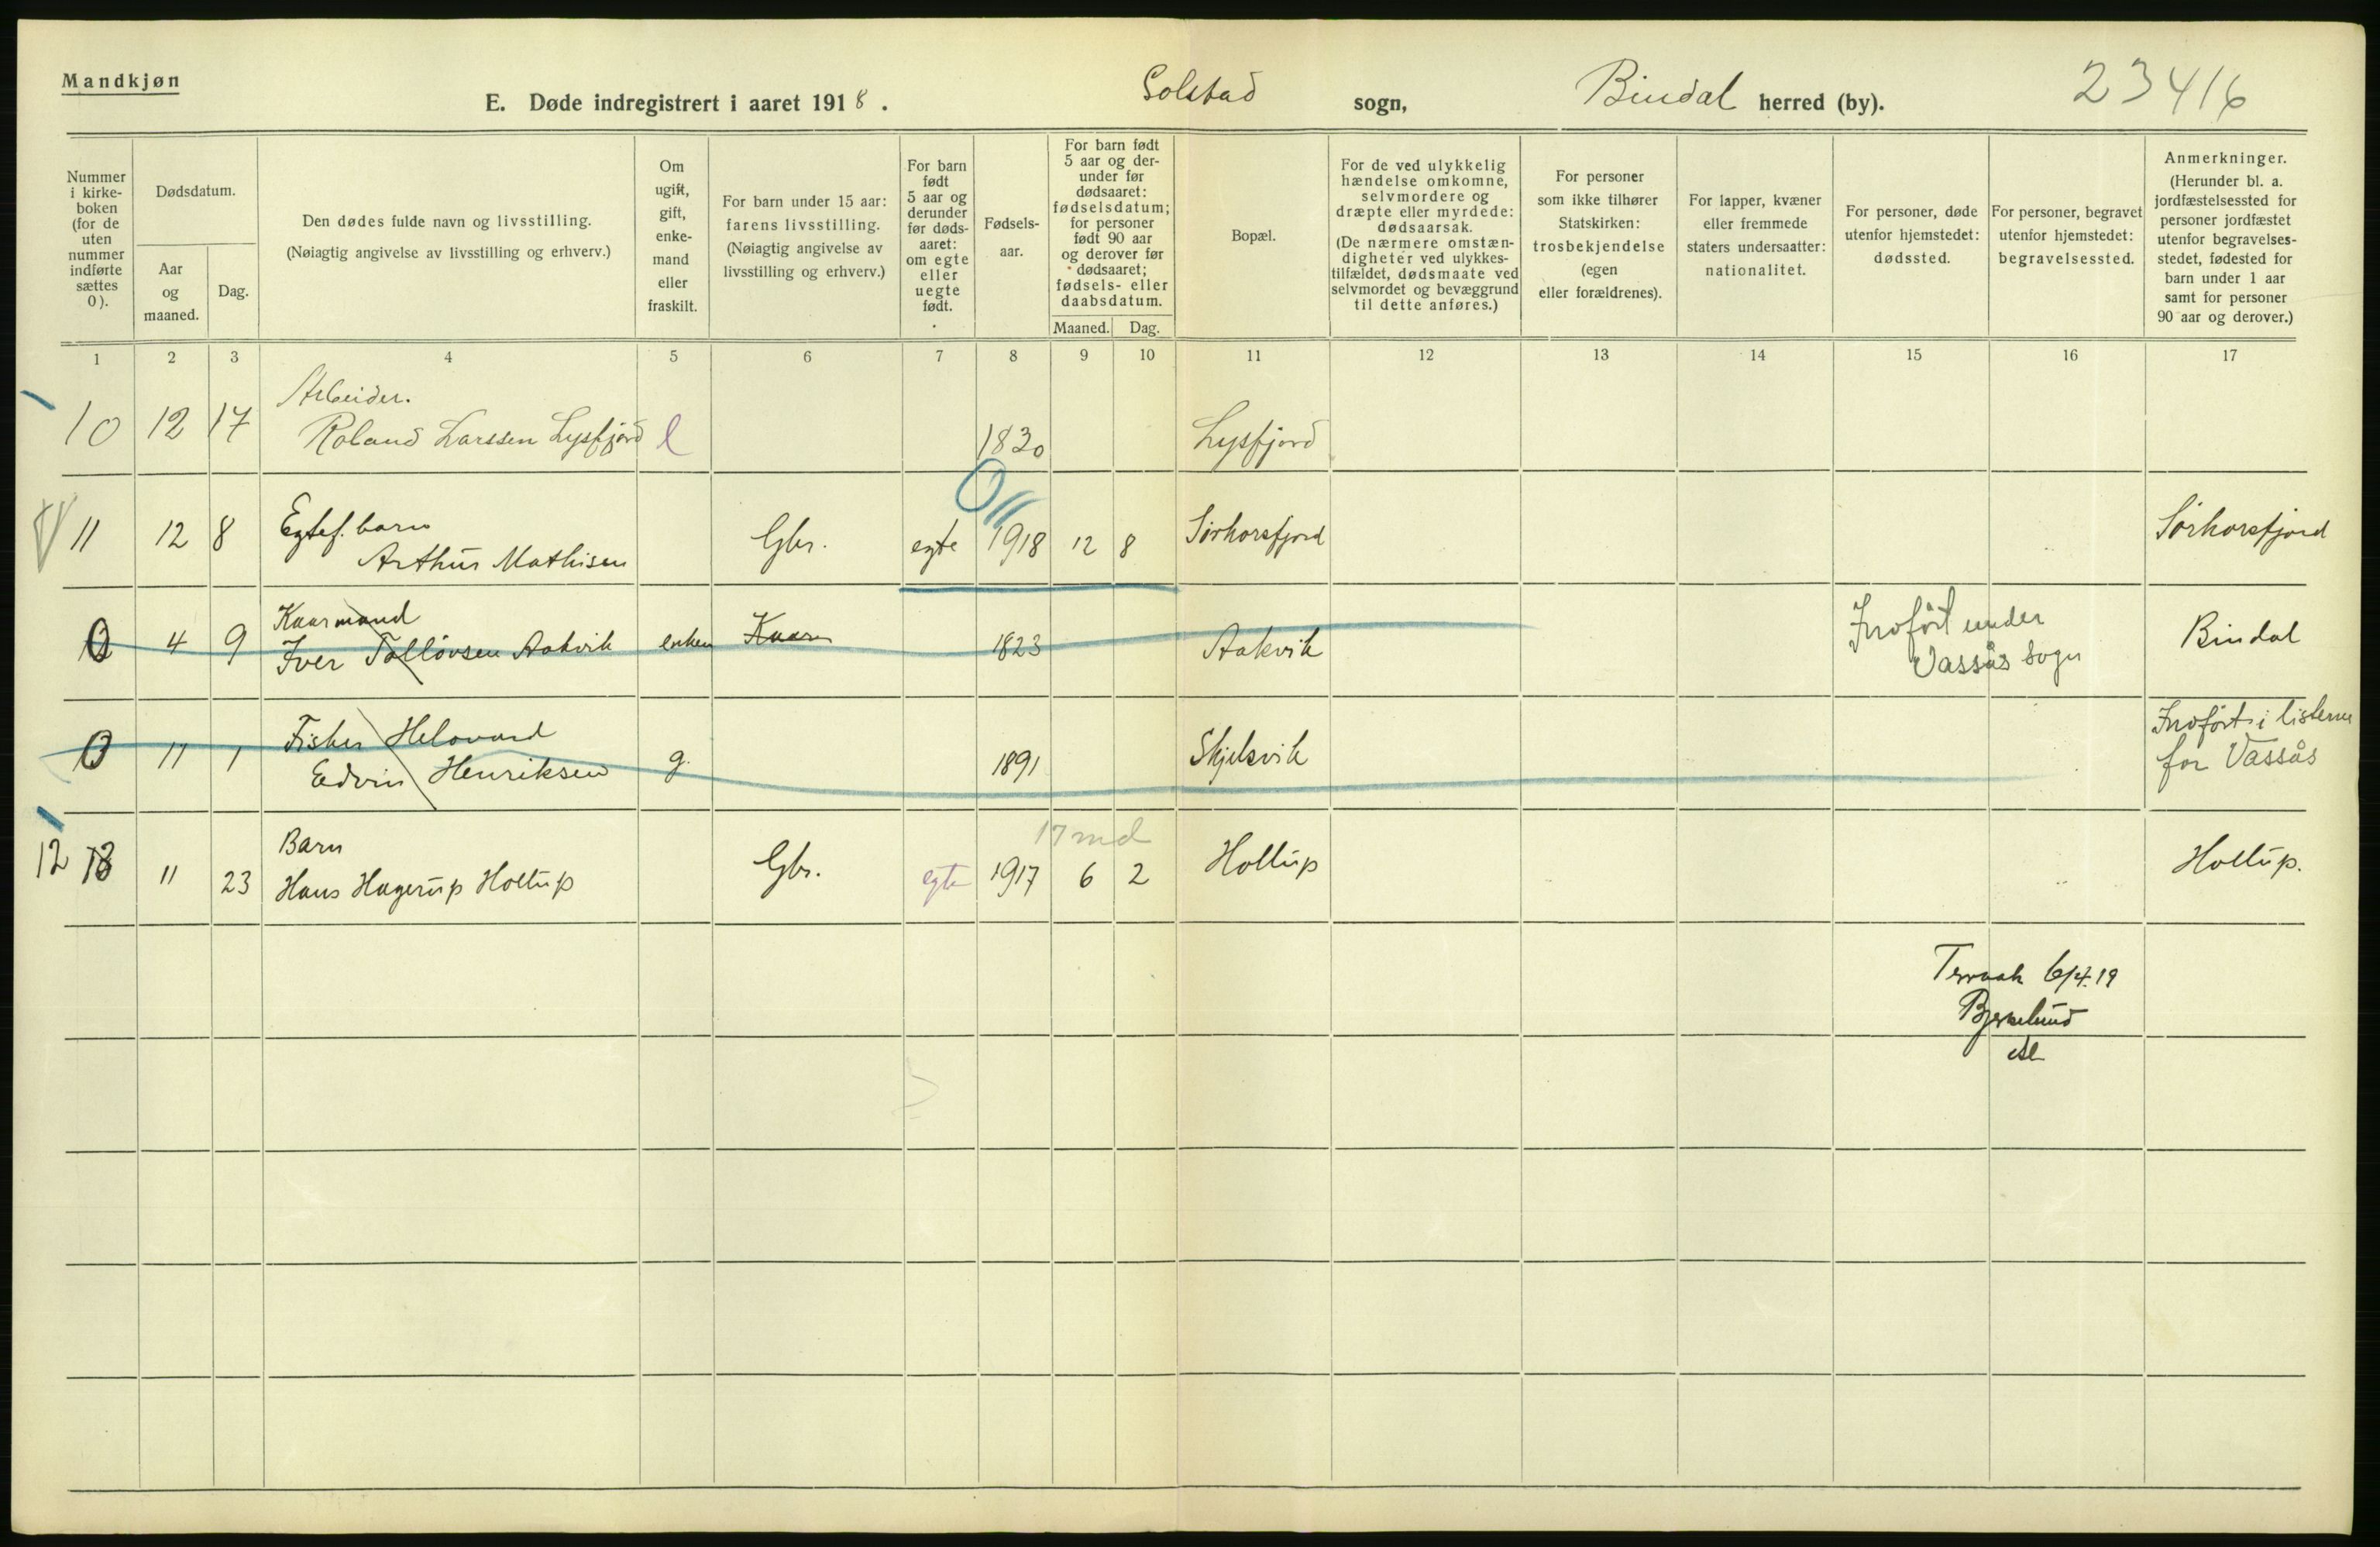 Mandkjøn
E. Døde indregistrert i aaret 1918. Solstad sogn, Bindal herred (by). 23416
Nummer i kirke-boken (for de uten nummer indførte sættes 0).
Dødsdatum.
Aar og maaned.
Dag.
Den dødes fulde navn og livsstilling.
(Nøiagtig angivelse av livsstilling og erhverv.)
Om ugift, gift, enke-mand eller fraskilt.
For barn under 15 aar: farens livsstilling. (Nøiagtig angivelse av livsstilling og erhverv.)
For barn født 5 aar og derunder før døds-aaret: om egte eller uegte født.
Fødsels-aar.
For barn født 5 aar og der-under før dødsaaret: fødselsdatum; for personer født 90 aar og derover før dødsaaret; fødsels- eller daabsdatum.
Maaned. Dag.
Bopæl.
For de ved ulykkelig hændelse omkomne, selvmordere og dræpte eller myrdede: dødsaarsak. (De nærmere omstæn-digheter ved ulykkes-tilfældet, dødsmaate ved selvmordet og bevæggrund til dette anføres.)
For personer som ikke tilhører Statskirken: trosbekjendelse (egen eller forældrenes).
For lapper, kvæner eller fremmede staters undersaatter: nationalitet.
For personer, døde utenfor hjemstedet: dødssted.
For personer, begravet utenfor hjemstedet: begravelsessted.
Anmerkninger. (Herunder bl. a. jordfæstelsessted for personer jordfæstet utenfor begravelses-stedet, fødested for barn under 1 aar samt for personer 90 aar og derover.)
1 2 3 4 5 6 7 8 9 10 11 12 13 14 15 16 17
Arbeider.
10 12 17 Roland Larssen Lysfjord l 1830 Lysfjord
Egtef. barn
11 12 8 Arthur Mathisen Gbr. egte 1918 12 8 Sørhorsfjord Sørhorsfjord
Kaarmand
0 4 9 Iver Tolløvsen Aakvik enkem Kaarm 1823 Aakvik Innført under Vassås sogn Bindal
Fisker Helovard
0 11 1 Edvin Henriksen g. 1891 Skjelsvik Innført i listerne for Vassås
17 md
Barn
12 13 11 23 Hans Hagerup Holtup Gbr. egte 1917 6 2 Holtup Holtup.
Terraak 6/4.19
Bjerkelund